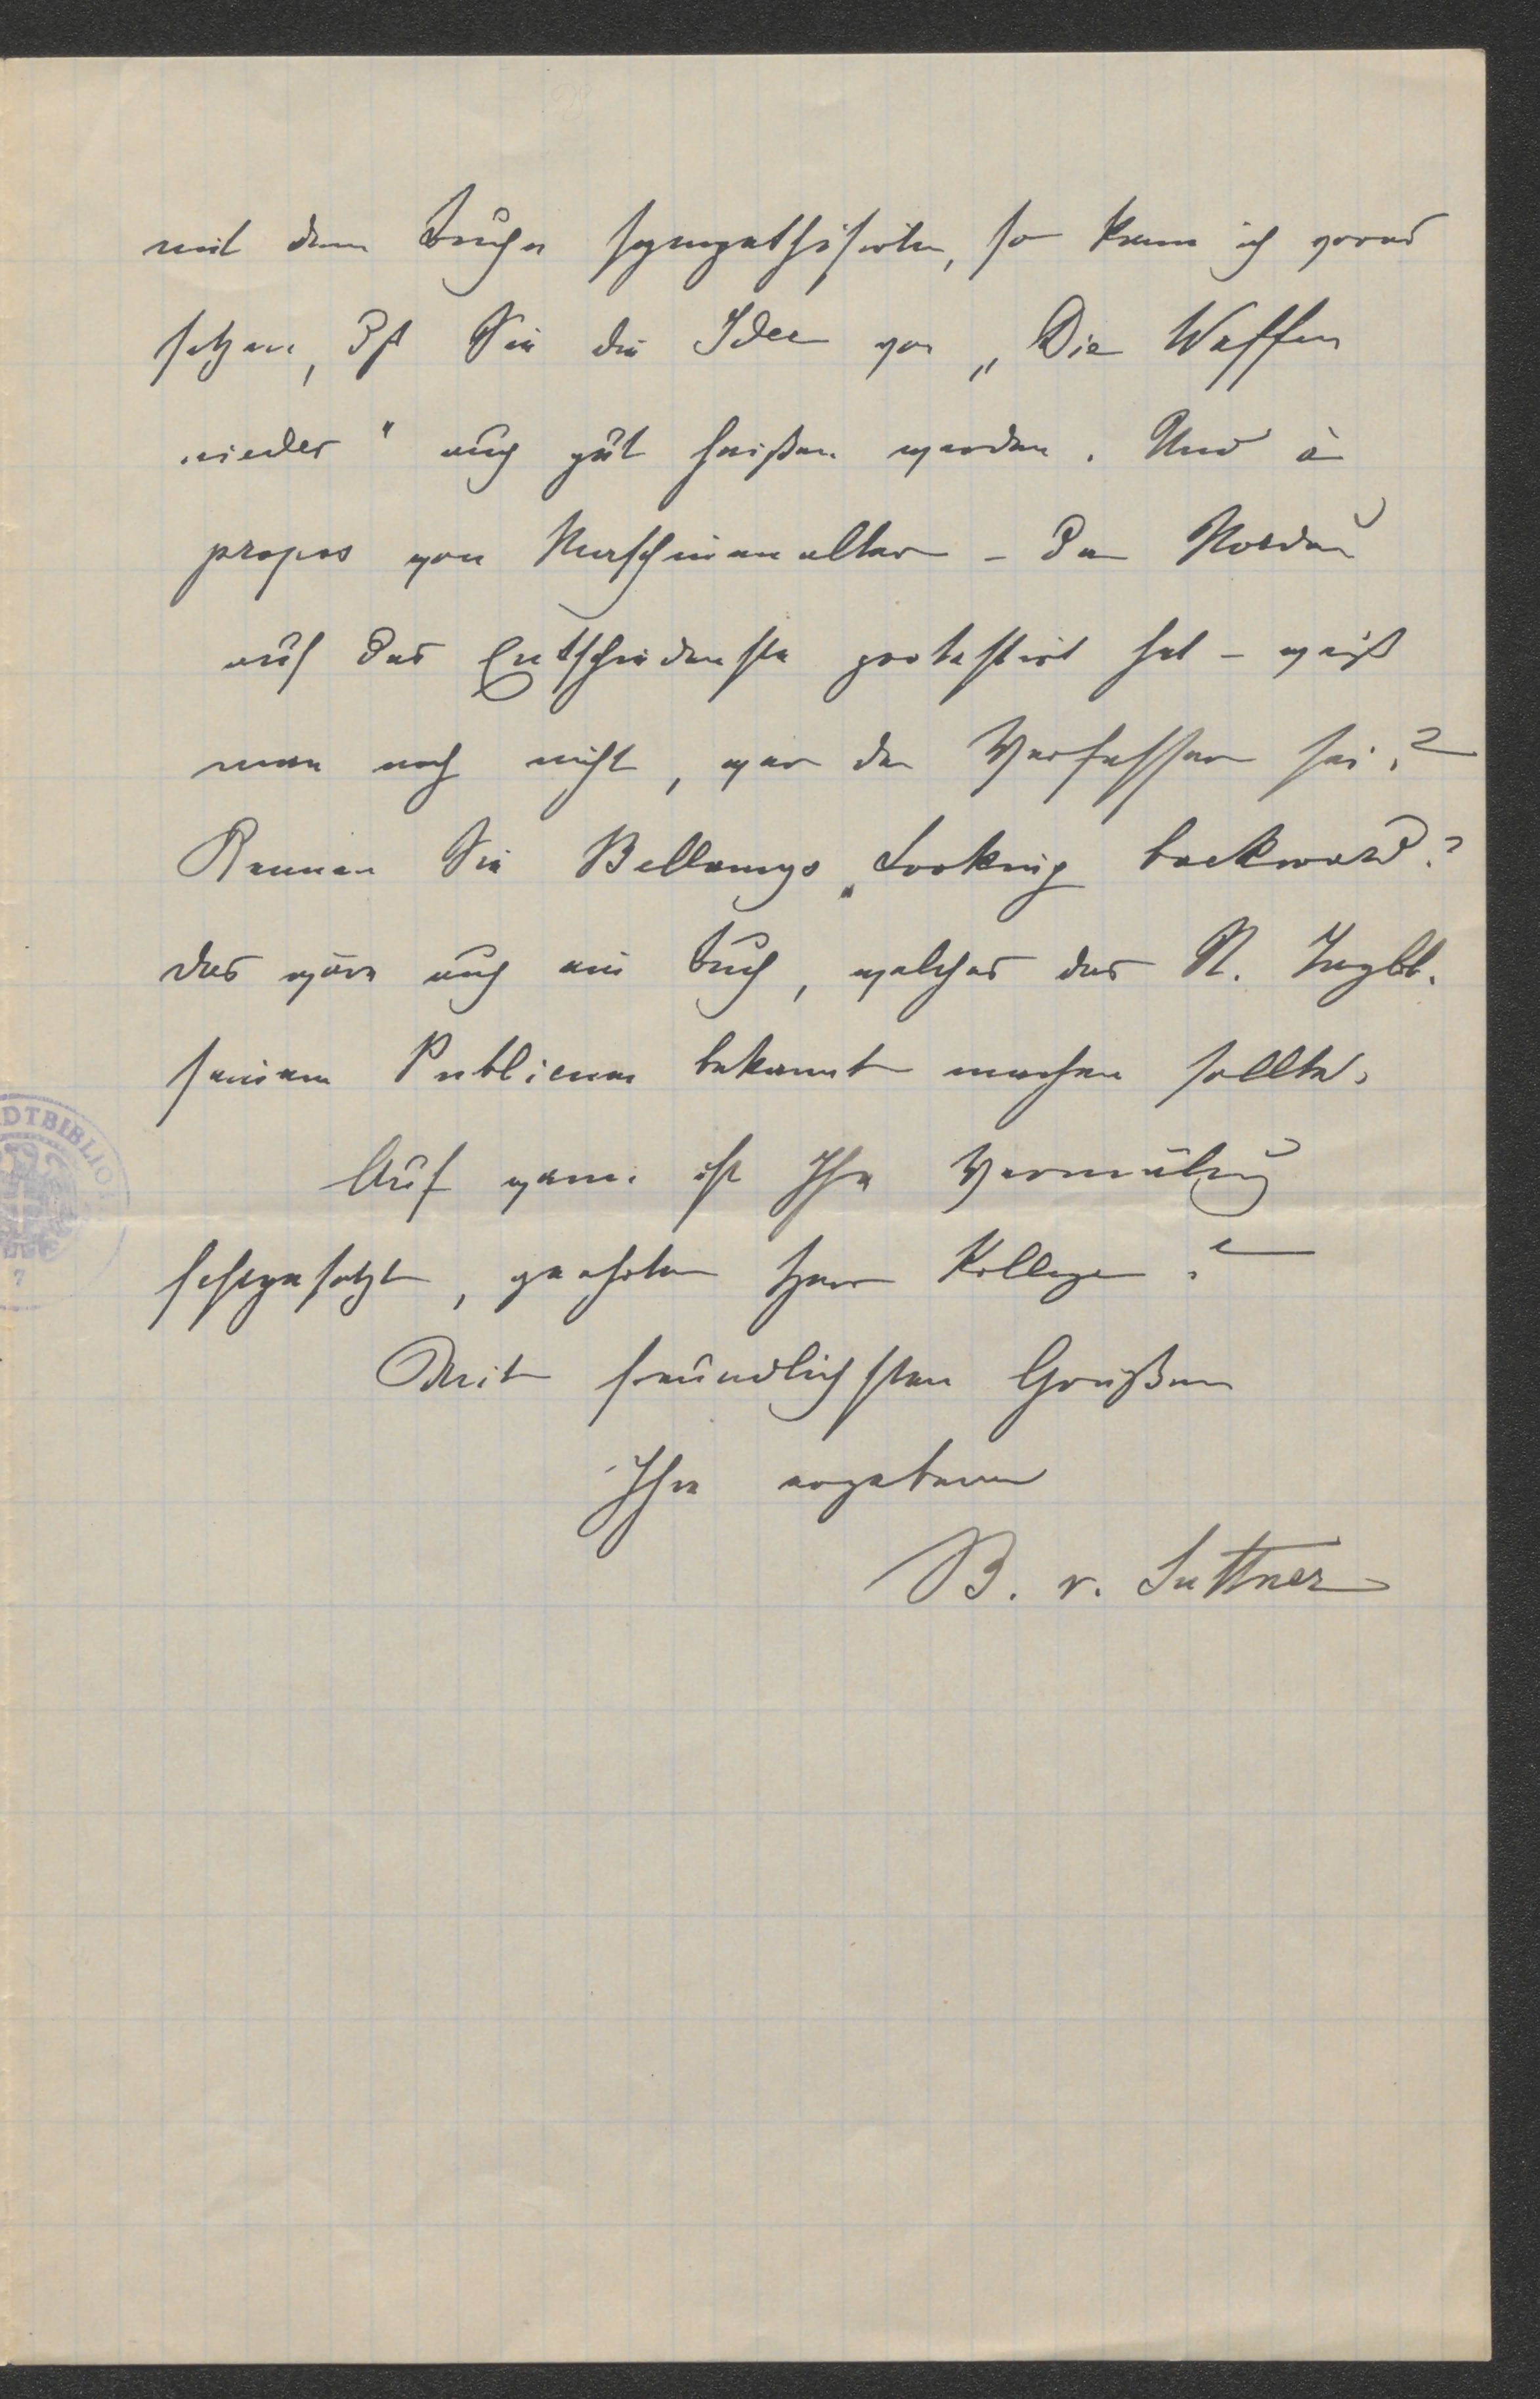 mit dem Buche sympathisirten, so kann ich voraus
setzen, dß Sie die Idee von „Die Waffen
nieder" auch gut heißen werden. Und à
propos von Maschinenalter – da Nordau
auf das Entschiedenste protestirt hat – weiß
man noch nicht, wer der Verfasser sei?
Kennen Sie Bellamys „Looking backward?
das wäre auch ein Buch, welches das N. Tagbl.
seinem Publicum bekannt machen sollte.
Auf wann ist Ihre Vermälung
festgesetzt, geehrter Herr Kollege?
Mit freundlichsten Grüßen
Ihre ergebene
B. v. Suttner
DTBIBLIOT
7